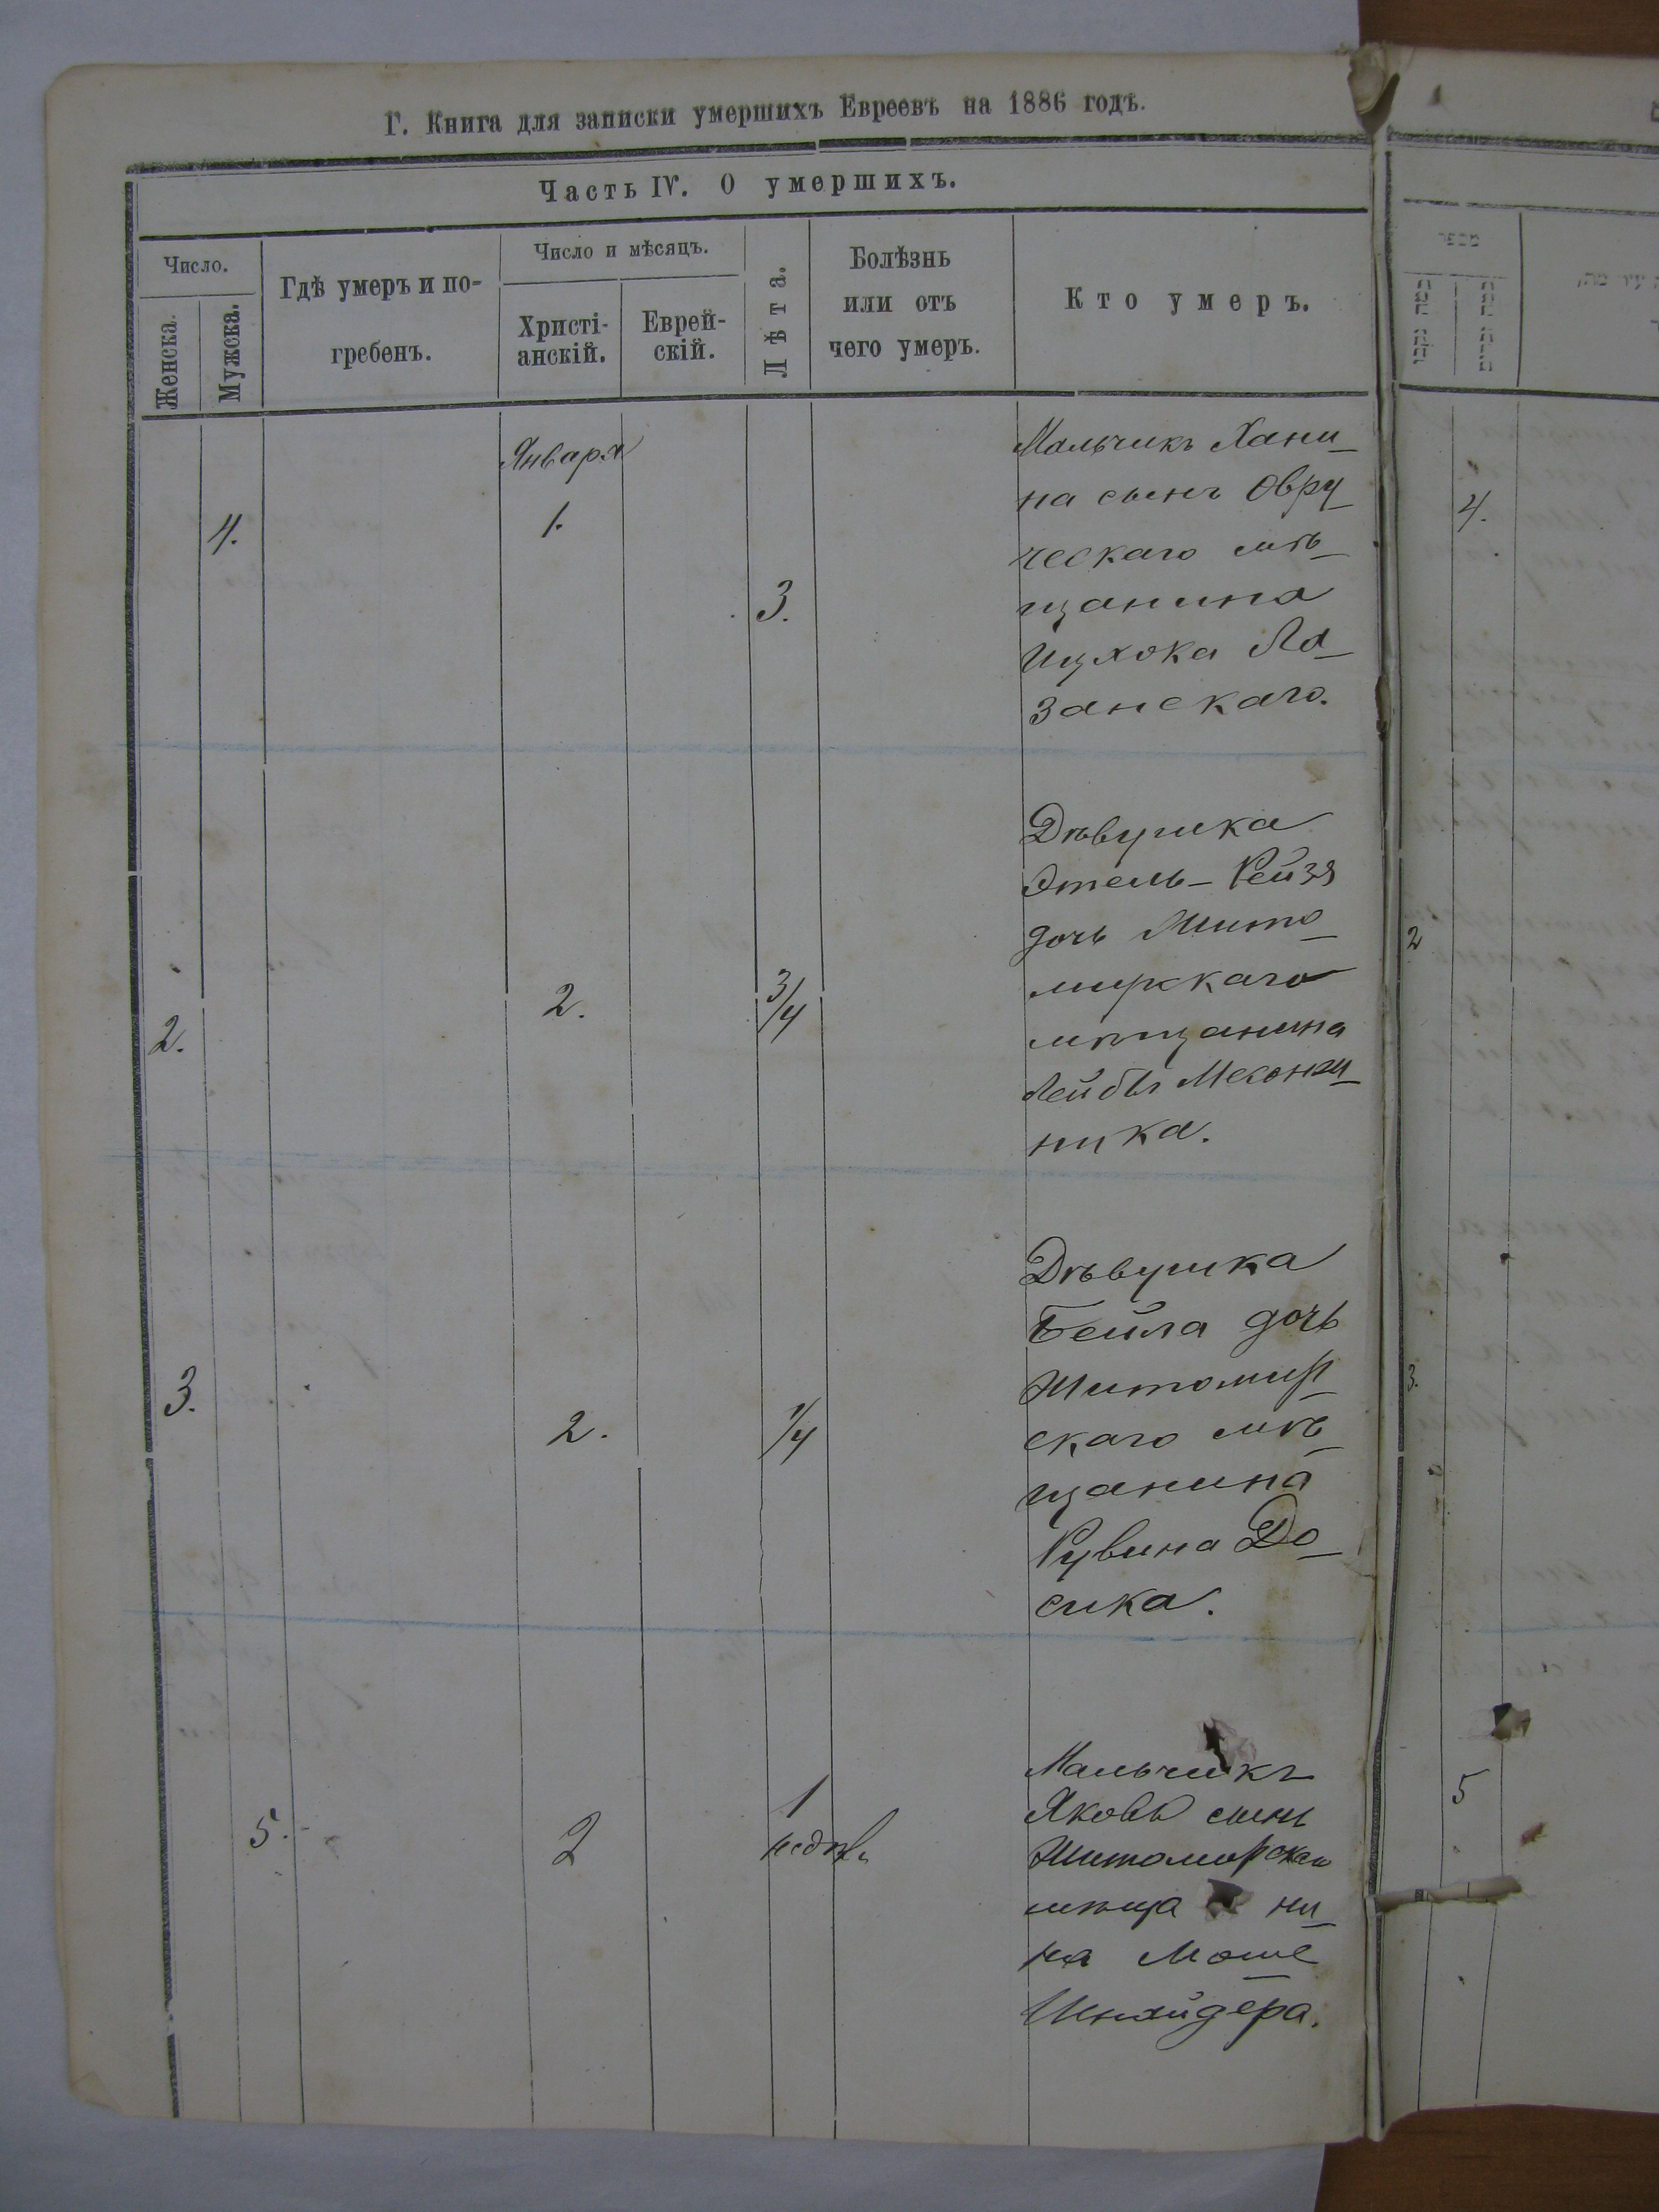 Г. Книга для записки умершихъ Евреевъ на 1886 годъ.
Часть IV. О умершихъ.
Число.
Женска.
Мужска.
Гдѣ умеръ и по-
гребенъ.
Число и мѣсяцъ.
Христі-
анскій.
Еврей-
скій.
Лѣта.
Болѣзнь
или отъ
чего умеръ.
Кто умеръ.
Января
4.
1.
3.
Мальчикъ Хани-
на сынъ Овру-
ческаго мѣ-
щанина
Ицхока Ла-
занскаго.
4.
2.
2.
3/4
Дѣвушка
Этель-Рейзя
дочь Жито-
мирскаго
мѣщанина
Лейбы
ника.
2
3.
2.
1/4
Дѣвушка
Бейла дочь
Житомир-
скаго мѣ-
щанина
Рувина До-
сика.
3.
5.
2
1
недѣл.
Мальчикъ
Яковъ сынъ
Житомирскаго
мѣща ни-
на Моше
Шнайдера.
5